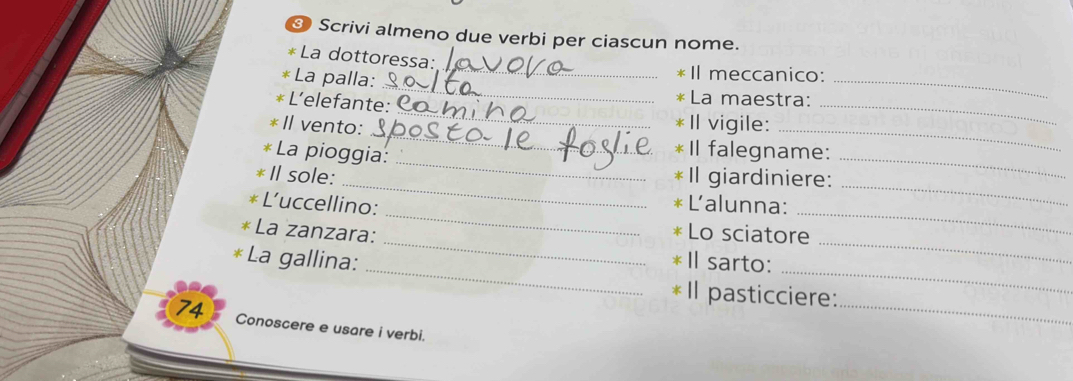 3 Scrivi almeno due verbi per ciascun nome.
* La dottoressa: lavora
* La palla: salta
* L'elefante: camina
* Il vento: sposta le foglie
* La pioggia:
* Il sole:
* L'uccellino:
* La zanzara:
* La gallina:
* Il meccanico:
* La maestra:
* Il vigile:
* Il falegname:
* Il giardiniere:
* L'alunna:
* Lo sciatore
* Il sarto:
* Il pasticciere:
74 Conoscere e usare i verbi.